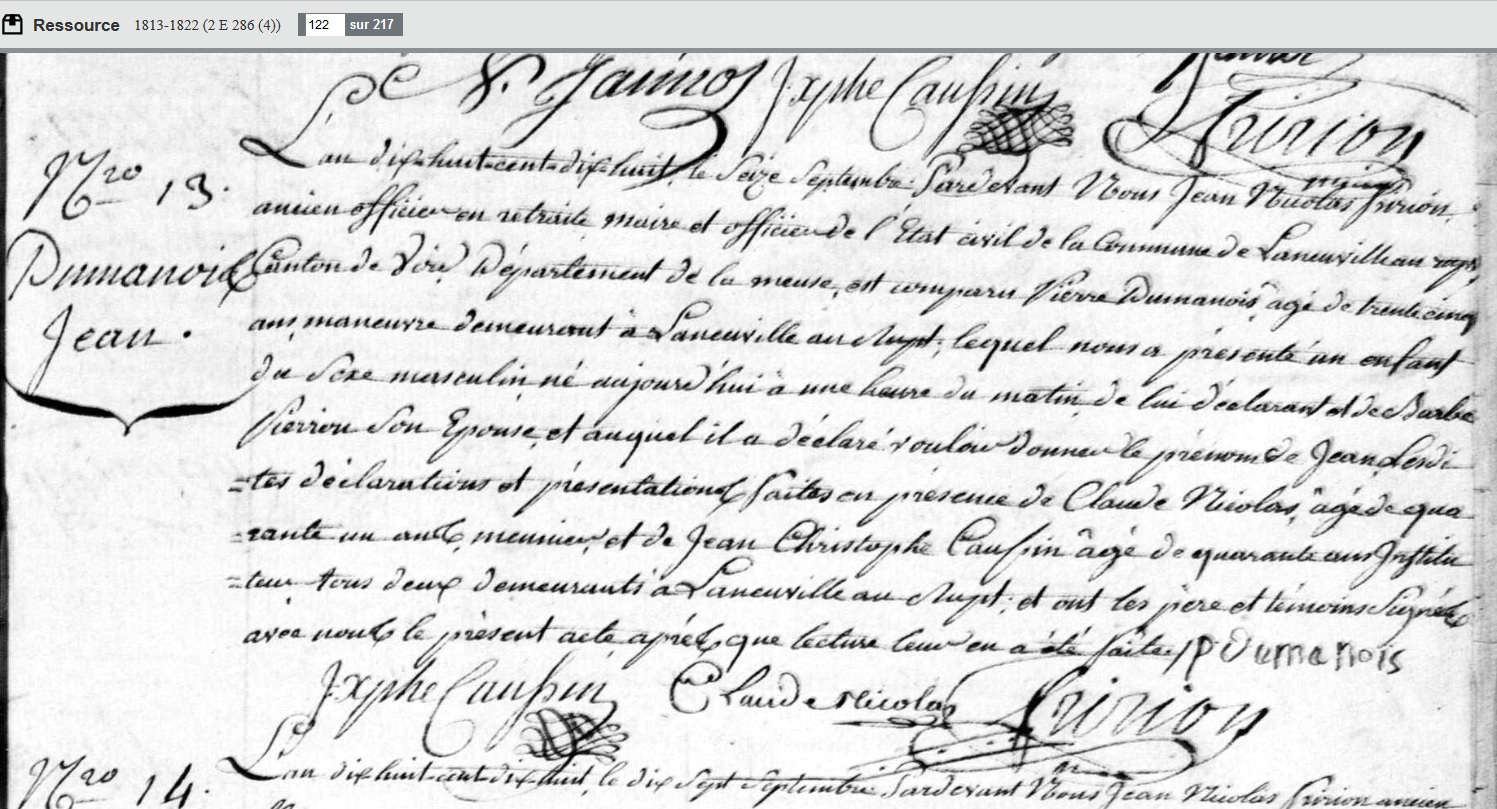 Ressource 1813-1822 (2 E 286 (4)) 122 sur 217
N. Jxphe Caussin
Fririon
Nro 13.
Dumanois
Jean.
L'an dix-huit-cent-dix huit, le Seize Septembre Pardevant Nous Jean Nicolas fririon,
ancien officier en retraite maire et officier de l'Etat civil de la Commune de Laneuville au rupt,
Canton de Void Département de la meuse, est comparu Pierre Dumanois, agé de trente cinq
ans manœuvre demeurant à Laneuville au Rupt, lequel nous a présenté un enfant
du Sexe masculin, né aujourd'hui à une heure du matin, de lui déclarant et de Barbe
Pierron Son Epouse, et auquel il a déclaré vouloir donner le prénom de Jean, Lesdi
=tes déclarations et présentations faites en présence de Claude Nicolas, âgé de qua
=rante un ans, meunier, et de Jean Christophe Caussin âgé de quarante ans Institu
=teur tous deux demeurants à Laneuville au Rupt, et ont les père et témoins Signés
avec nous le présent acte après que lecture leur en a été faite. P Dumanois
Jxphe Caussin Claude Nicolas Fririon
Nro 14.
L'an dix huit cent dix huit, le dix Sept Septembre Pardevant Nous Jean Nicolas fririon ancien